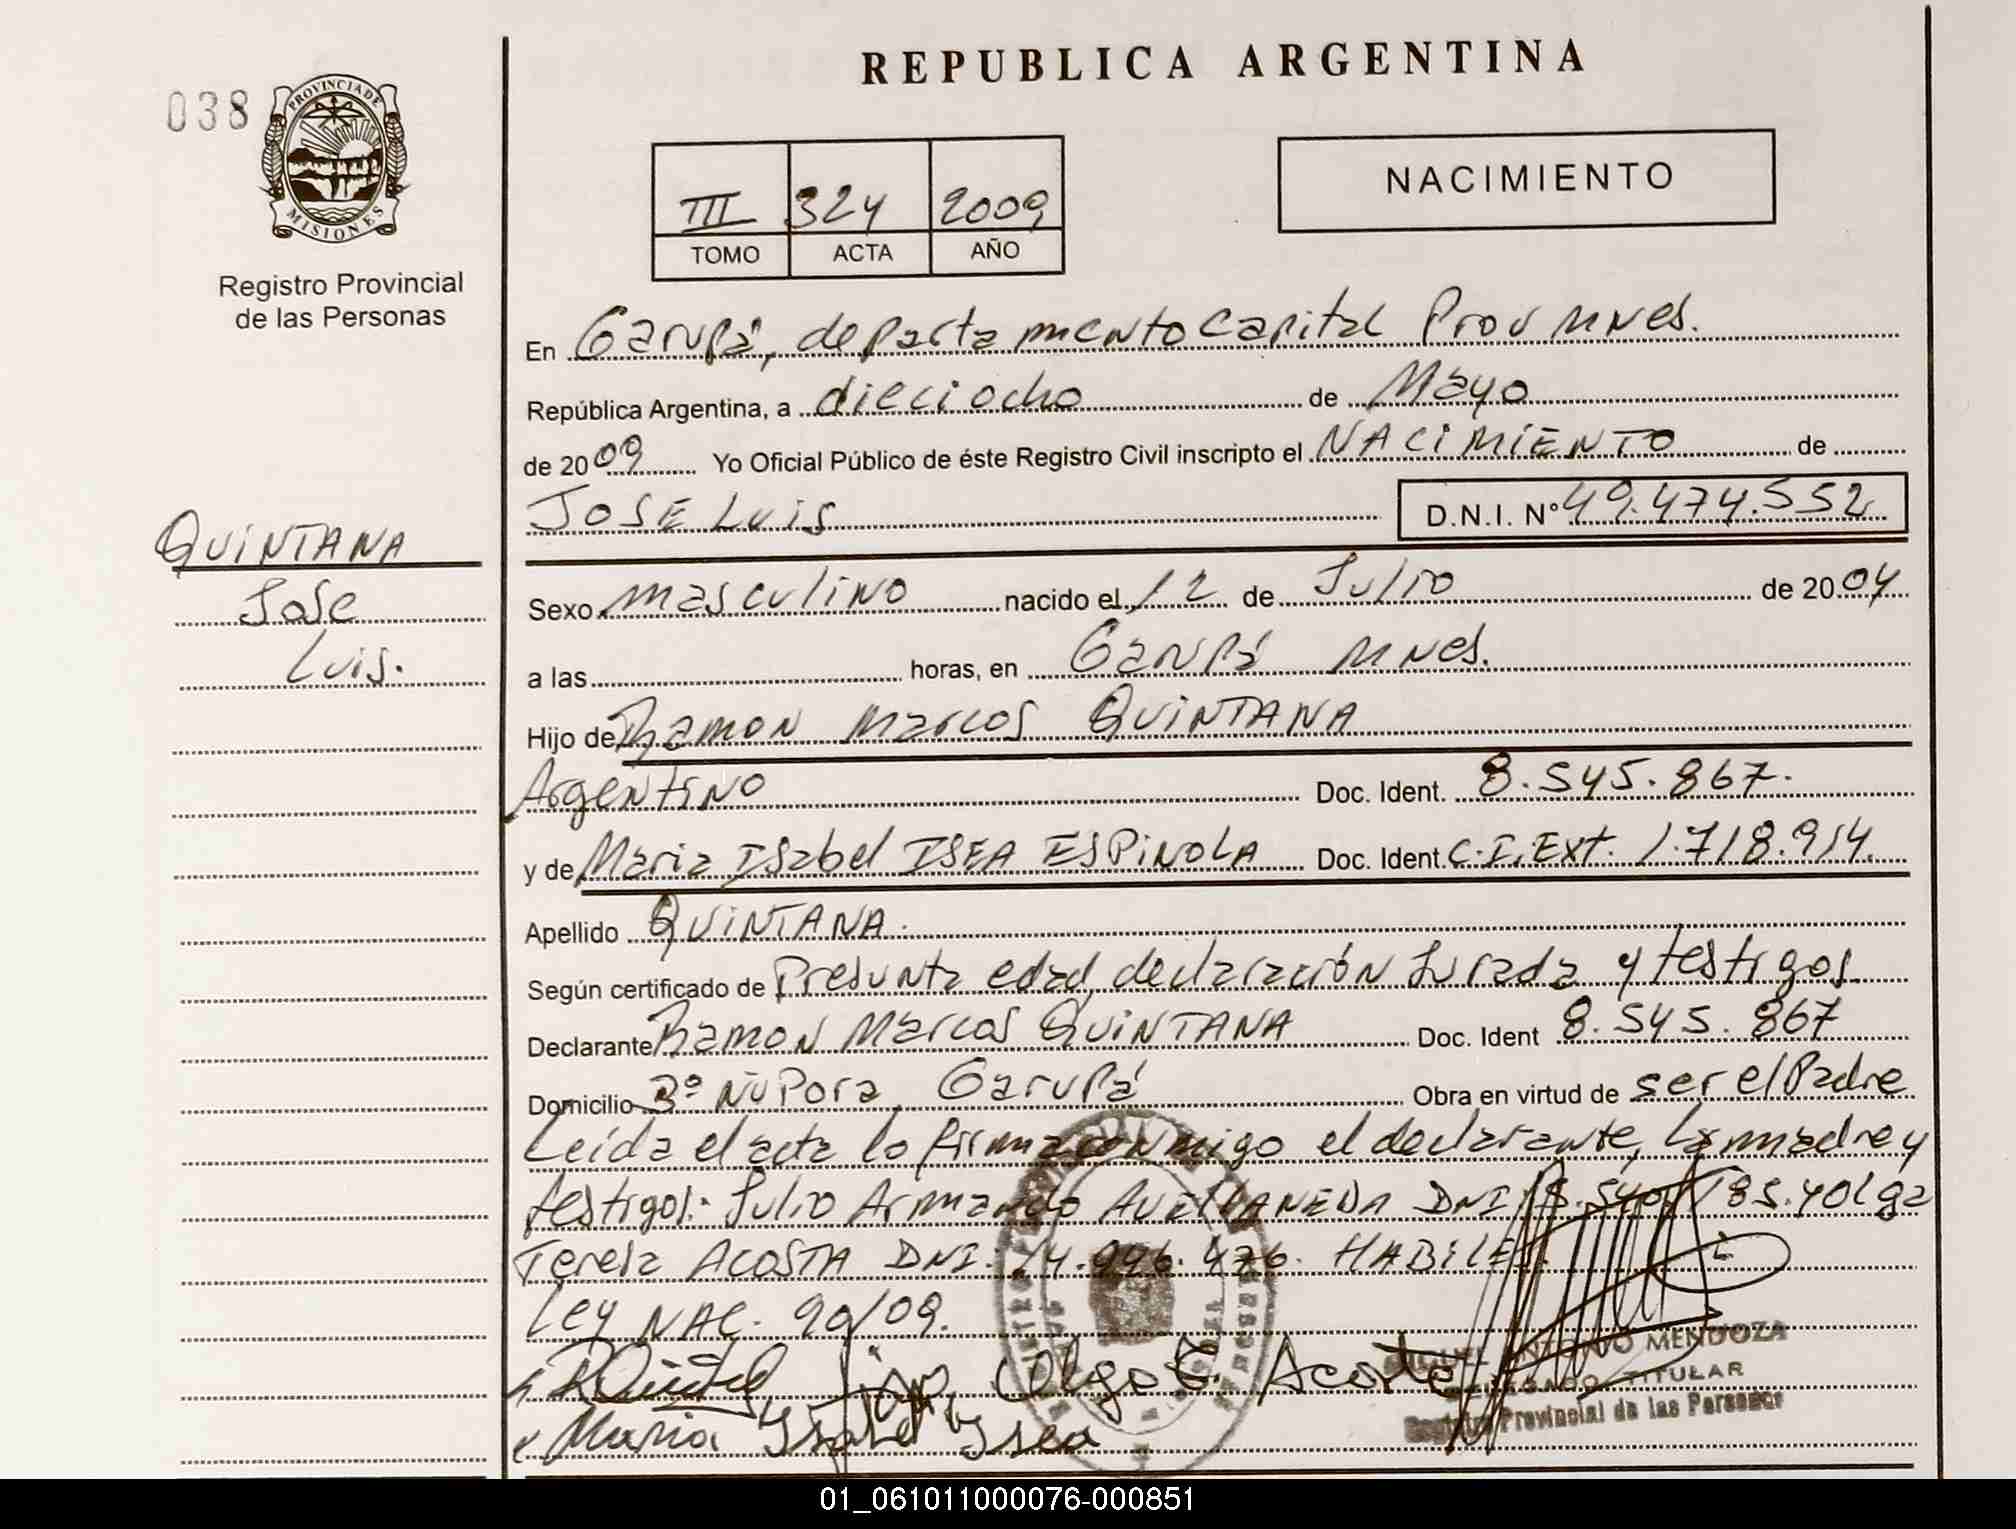 REPUBLICA ARGENTINA
038
PROVINCIA DE
MISIONES
Registro Provincial
de las Personas
III 324 2009
TOMO ACTA AÑO
NACIMIENTO
En Garupá, departamento Capital Prov Mnes.
República Argentina, a dieciocho de Mayo
de 2009 Yo Oficial Público de éste Registro Civil inscripto el NACIMIENTO de
JOSE LUIS D.N.I. N° 49.474.552
QUINTANA
Jose
Luis.
Sexo masculino nacido el 12 de Julio de 2004
a las horas, en Garupá Mnes.
Hijo de Ramon Marcos QUINTANA
Argentino Doc. Ident. 8.545.867.
y de Maria Isabel ISEA ESPINOLA Doc. Ident. C.I. Ext. 1.718.914.
Apellido QUINTANA.
Según certificado de Presunta edad, declaración Jurada y testigos.
Declarante Ramon Marcos QUINTANA Doc. Ident 8.545.867
Domicilio Bº Ñu Pora Garupá Obra en virtud de ser el Padre
Leída el acta lo firma conmigo el declarante, la madre y
testigos: Julio Armando AVELLANEDA DNI 785. y Olga
Teresa ACOSTA DNI: 14.946.476. HABILES
Ley NAC. 90/09.
Olga T. Acosta
Maria Isabel Isea
MIGUEL ANTONIO MENDOZA
DELEGADO TITULAR
Registro Provincial de las Personas
01_061011000076-000851